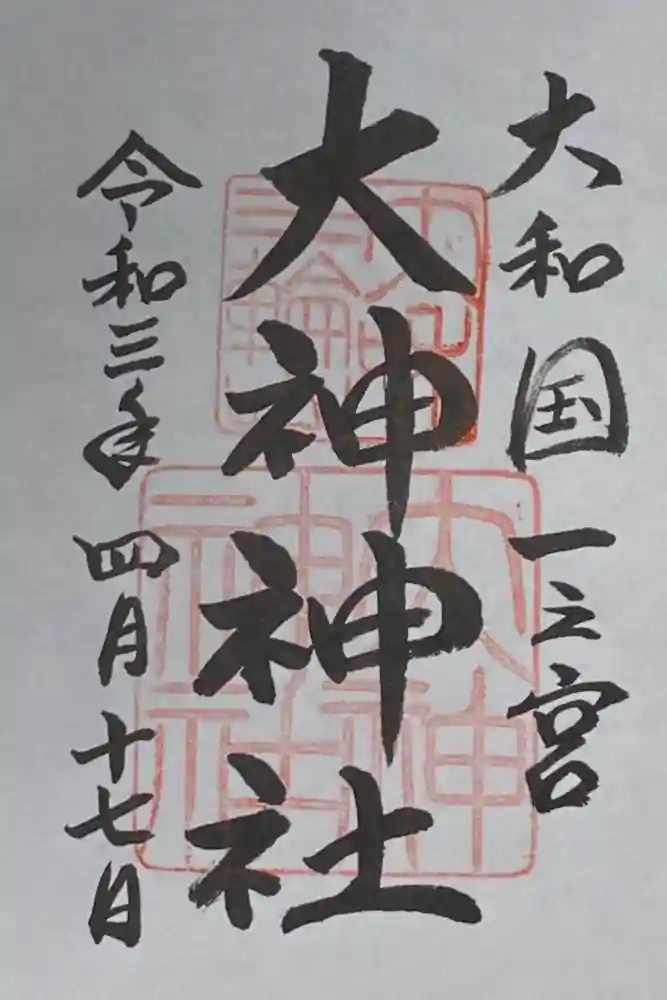 大和国一之宮
大神神社
令和三年四月十七日
大神
神社